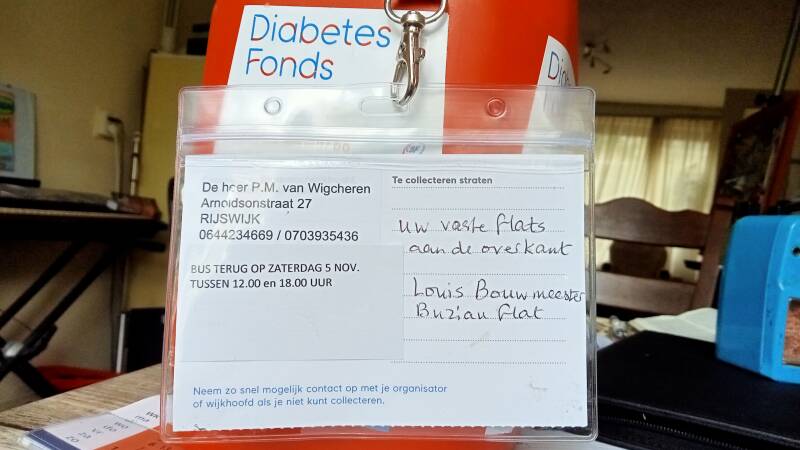 Diabetes
Fonds
De heer P.M. van Wigcheren
Arnoldsonstraat 27
RIJSWIJK
0644234669 / 0703935436
BUS TERUG OP ZATERDAG 5 NOV.
TUSSEN 12.00 en 18.00 UUR
Te collecteren straten
uw vaste flats
aan de overkant
Louis Bouwmeester
Buziau flat
Neem zo snel mogelijk contact op met je organisator
of wijkhoofd als je niet kunt collecteren.
wo
do
vr
za
zo